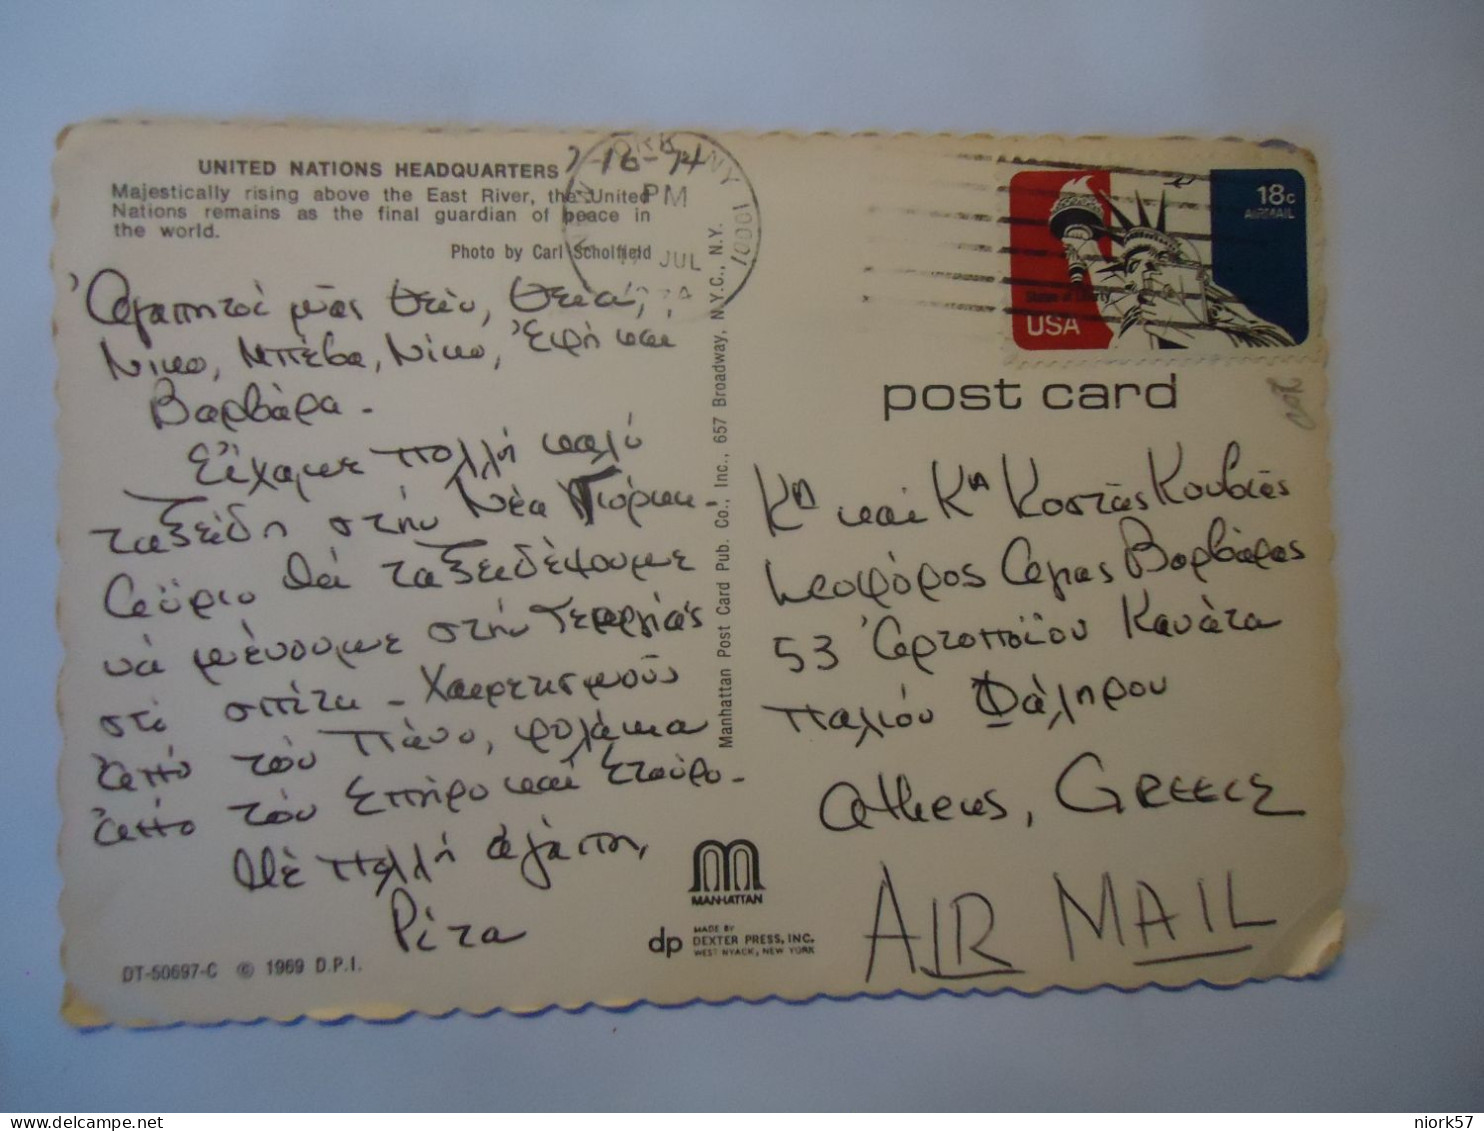 UNITED NATIONS HEADQUARTERS
Majestically rising above the East River, the United
Nations remains as the final guardian of peace in
the world.
Photo by Carl Scholfield
7-16-74
NEW YORK NY
PM
17 JUL
10001
Ἀγαπητοί μᾶς θεῖο, θεία,
Νίκο, Μπέβα, Νίκο, Ἔφη καί
Βαρβάρα -
Εἴχαμε πολλή καλό
ταξείδη στήν Νέα Υιόρκη.
Αὔριο θά ταξειδέψουμε
νά μένουμε στήν Γεωργίας
στό σπίτι - Χαιρετισμοῦς
ἀπό τόν Πάνο, φυλάκια
ἀπό τόν Σπῆρο καί Σταύρο -
Μέ πολλή ἀγάπη,
Ρίτα
DT-50697-C © 1969 D.P.I.
Manhattan Post Card Pub. Co., Inc., 657 Broadway, N.Y.C., N.Y.
MANHATTAN
dp MADE BY
DEXTER PRESS, INC.
WEST NYACK, NEW YORK
18c
AIRMAIL
Statue of Liberty
USA
post card
Κον καί Κα Κοστᾶς Κουβᾶς
Λεοφόρος Αγιας Βαρβάρας
53 Ἀρτοποϊου Κανάτα
Παλιόυ Φάληρου
Athens, GREECE
AIR MAIL
niork57